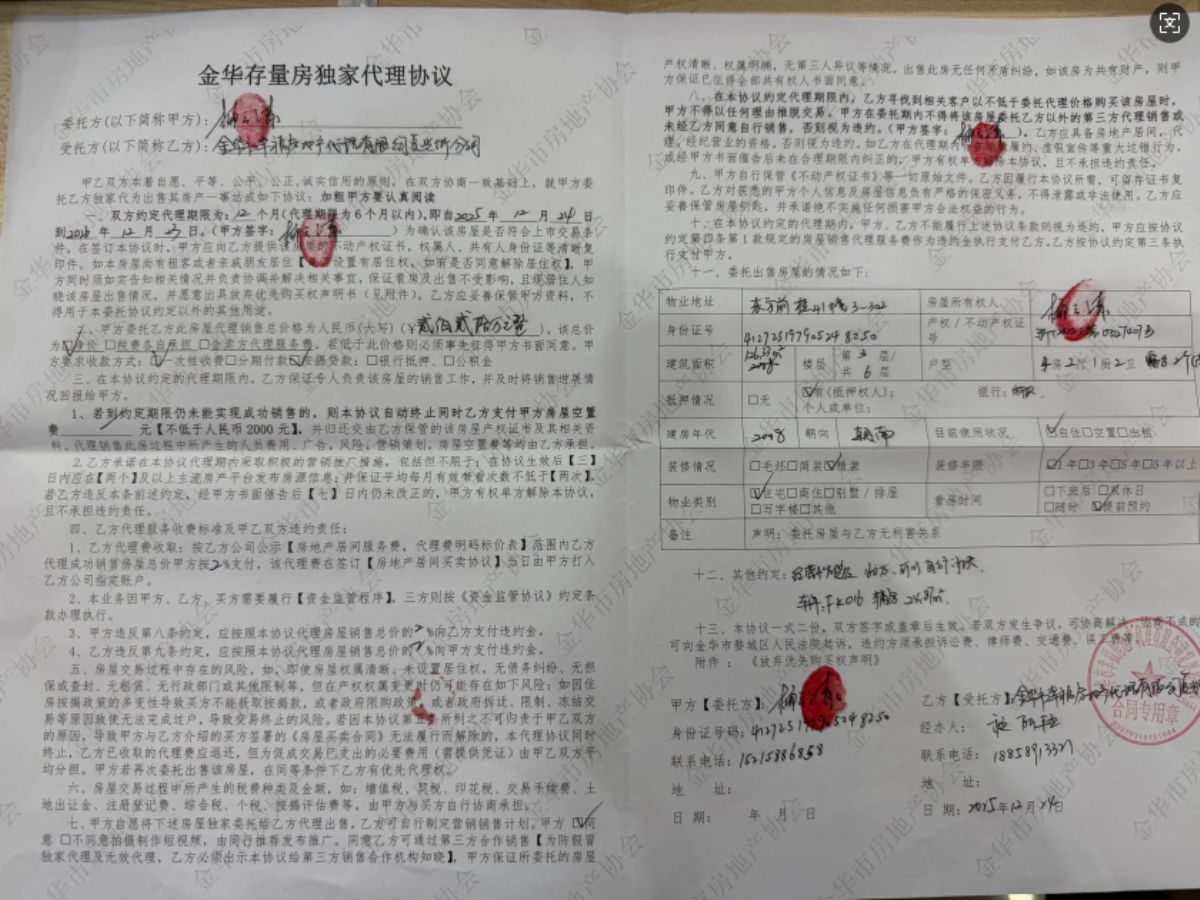 金华存量房独家代理协议
委托方(以下简称甲方):
受托方(以下简称乙方):
甲乙双方本着自愿、平等、公平、公正、诚实信用的原则,在双方协商一致基础上,就甲方委
托乙方独家代为出售其房产一事达成如下协议:加粗甲方要认真阅读
一、双方约定代理期限为: 12 个月(代理期限为6个月以内),即自2025年 12 月 24 日
到2026年 12 月 23 日。(甲方签字: )为确认该房屋是否符合上市交易条
件,在签订本协议时,甲方应向乙方提供该房屋的不动产权证书,权属人、共有人身份证等清晰复
印件。如本房屋尚有租客或者亲戚朋友居住【 设置有居住权,如有是否同意解除居住权】,甲
方同时须如实告知相关情况并负责协调并解决相关事宜,保证看房及出售不受影响,且现居住人知
晓该房屋出售情况,并愿意出具放弃优先购买权声明书(见附件)。乙方应妥善保管甲方资料,不
得用于本委托协议约定以外的其他用途。
二、甲方委托乙方此房屋代理销售总价格为人民币(大写)(¥ ),该总价
为☑净价 □税费各自承担 □含卖方代理服务费。若低于此价格则必须事先征得甲方书面同意。甲
方要求收款方式:☑一次性收费□分期付款☑按揭贷款:□银行抵押、□公积金
三、在本协议约定的代理期限内,乙方保证专人负责该房屋的销售工作,并及时将销售进展情
况回报给甲方。
1、若到约定期限仍未能实现成功销售的,则本协议自动终止同时乙方支付甲方房屋空置
费 元【不低于人民币 2000 元】,并归还交由乙方保管的该房屋产权证书及其相关资
料。代理销售此房过程中所产生的人员费用、广告、风险,营销策划,房屋空置费等均由乙方承担。
2.乙方承诺在本协议代理期内采取积极的营销推广措施,包括但不限于:在协议生效后【三】
日内应在【两个】及以上主流房产平台发布房源信息;并保证平均每月有效带看次数不低于【两次】,
若乙方违反本条前述约定,经甲方书面催告后【七】日内仍未改正的,甲方有权单方解除本协议,
且不承担违约责任。
四、乙方代理服务收费标准及甲乙双方违约责任:
1、乙方代理费收取:按乙方公司公示【房地产居间服务费,代理费明码标价表】范围内乙方
代理成功销售房屋总价甲方按2%支付,该代理费在签订【房地产居间买卖协议】当日由甲方打入
乙方公司指定账户。
2、本业务因甲方、乙方、买方需要履行【资金监管程序】,三方则按《资金监管协议》约定条
款办理执行。
3、甲方违反第八条约定,应按照本协议代理房屋销售总价的 %向乙方支付违约金。
4、乙方违反第九条约定,应按照本协议代理房屋销售总价的 %向甲方支付违约金。
五、房屋交易过程中存在的风险,如:即使房屋权属清晰、未设置居住权,无债务纠纷、无担
保或查封、无租赁、无行政部门或其他限制等,但在产权权属变更时仍可能存在如下风险:如因住
房按揭政策的多变性导致买方不能获取按揭款,或者政府限购政策,或者政府拆迁、限制、冻结交
易等原因致使无法完成过户,导致交易终止的风险。若因本协议第五条所列之不可归责于甲乙双方
的原因,导致甲方与乙方介绍的买方签署的《房屋买卖合同》无法履行而解除的,本代理协议同时
终止,乙方已收取的代理费应退还,但为促成交易已支出的必要费用(需提供凭证)由甲乙双方平
均分担。甲方若再次委托出售该房屋,在同等条件下乙方有优先代理权。
六、房屋交易过程中所产生的税费种类及金额,如:增值税,契税,印花税、交易手续费、土
地出让金、注册登记费、综合税、个税、按揭评估费等。由甲方与买方自行协商承担。
七、甲方自愿将下述房屋独家委托给乙方代理出售,乙方可自行制定营销销售计划。甲方 ☑同
意 □不同意拍摄制作短视频,由同行推荐发布推广。同意乙方可通过第三方合作销售【为防假冒
独家代理及无效代理,乙方必须出示本协议给第三方销售合作机构知晓】,甲方保证所委托的房屋
产权清晰、权属明朗,无第三人异议等情况。出售此房无任何矛盾纠纷,如该房为共有财产,则甲
方保证已征得全部共有权人书面同意。
八、在本协议约定代理期限内,乙方寻找到相关客户以不低于委托代理价格购买该房屋时,
甲方不得以任何理由推脱交易。甲方在委托期内不得将该房屋委托乙方以外的第三方代理销售或
未经乙方同意自行销售,否则视为违约。(甲方签字: )。乙方应具备房地产居间、代
理、经纪营业的资格,否则视为违约。如乙方在代理期内 履约、虚假宣传等重大过错行为,
或经甲方书面催告后未在合理期限内纠正的,甲方有权单方解除本协议,且不承担违约责任。
九、甲方自行保管《不动产权证书》等一切原始文件。乙方因履行本协议所需,可留存证书复
印件。乙方对获悉的甲方个人信息及房屋信息负有严格的保密义务,不得泄露或非法使用。乙方应
妥善保管房屋钥匙,并承诺绝不实施任何损害甲方合法权益的行为。
十、在本协议约定的代理期内,甲方、乙方不能履行上述协议条款则视为违约,甲方应按协议
约定第四条第1款规定的房屋销售代理服务费作为违约金执行支付乙方。乙方按协议约定第三条执
行支付甲方。
十一、委托出售房屋的情况如下:
物业地址 房屋所有权人
身份证号 412725197905248250 产权/不动产权证号
建筑面积 楼层 第 3 层/共 6 层 户型
抵押情况 □无 ☑有(抵押权人): 银行:
个人或单位:
建房年代 朝向 朝南 目前使用状况 ☑自住□空置□出租
装修情况 □毛坯□简装☑精装 装修年限 ☑1年□3年□5年□5年以上
物业类别 ☑住宅□商住□别墅/排屋 看房时间 □下班后 □双休日
□写字楼□其他 □随时 ☑提前预约
备注 声明:委托房屋与乙方无利害关系
十二、其他约定:
十三、本协议一式二份,双方签字或盖章后生效。若双方发生争议,可协商解决,协商不成的
可向金华市婺城区人民法院起诉,违约方须承担诉讼费、律师费、交通费、误工费等。
附件:《放弃优先购买权声明》
甲方【委托方】:
身份证号码:412725197905248250
联系电话:15215886858
地 址:
日 期: 年 月 日
乙方【受托方】:
经办人:
联系电话:18858913327
地 址:
日 期:2025年12月24日
合同专用章
金华市房地产协会